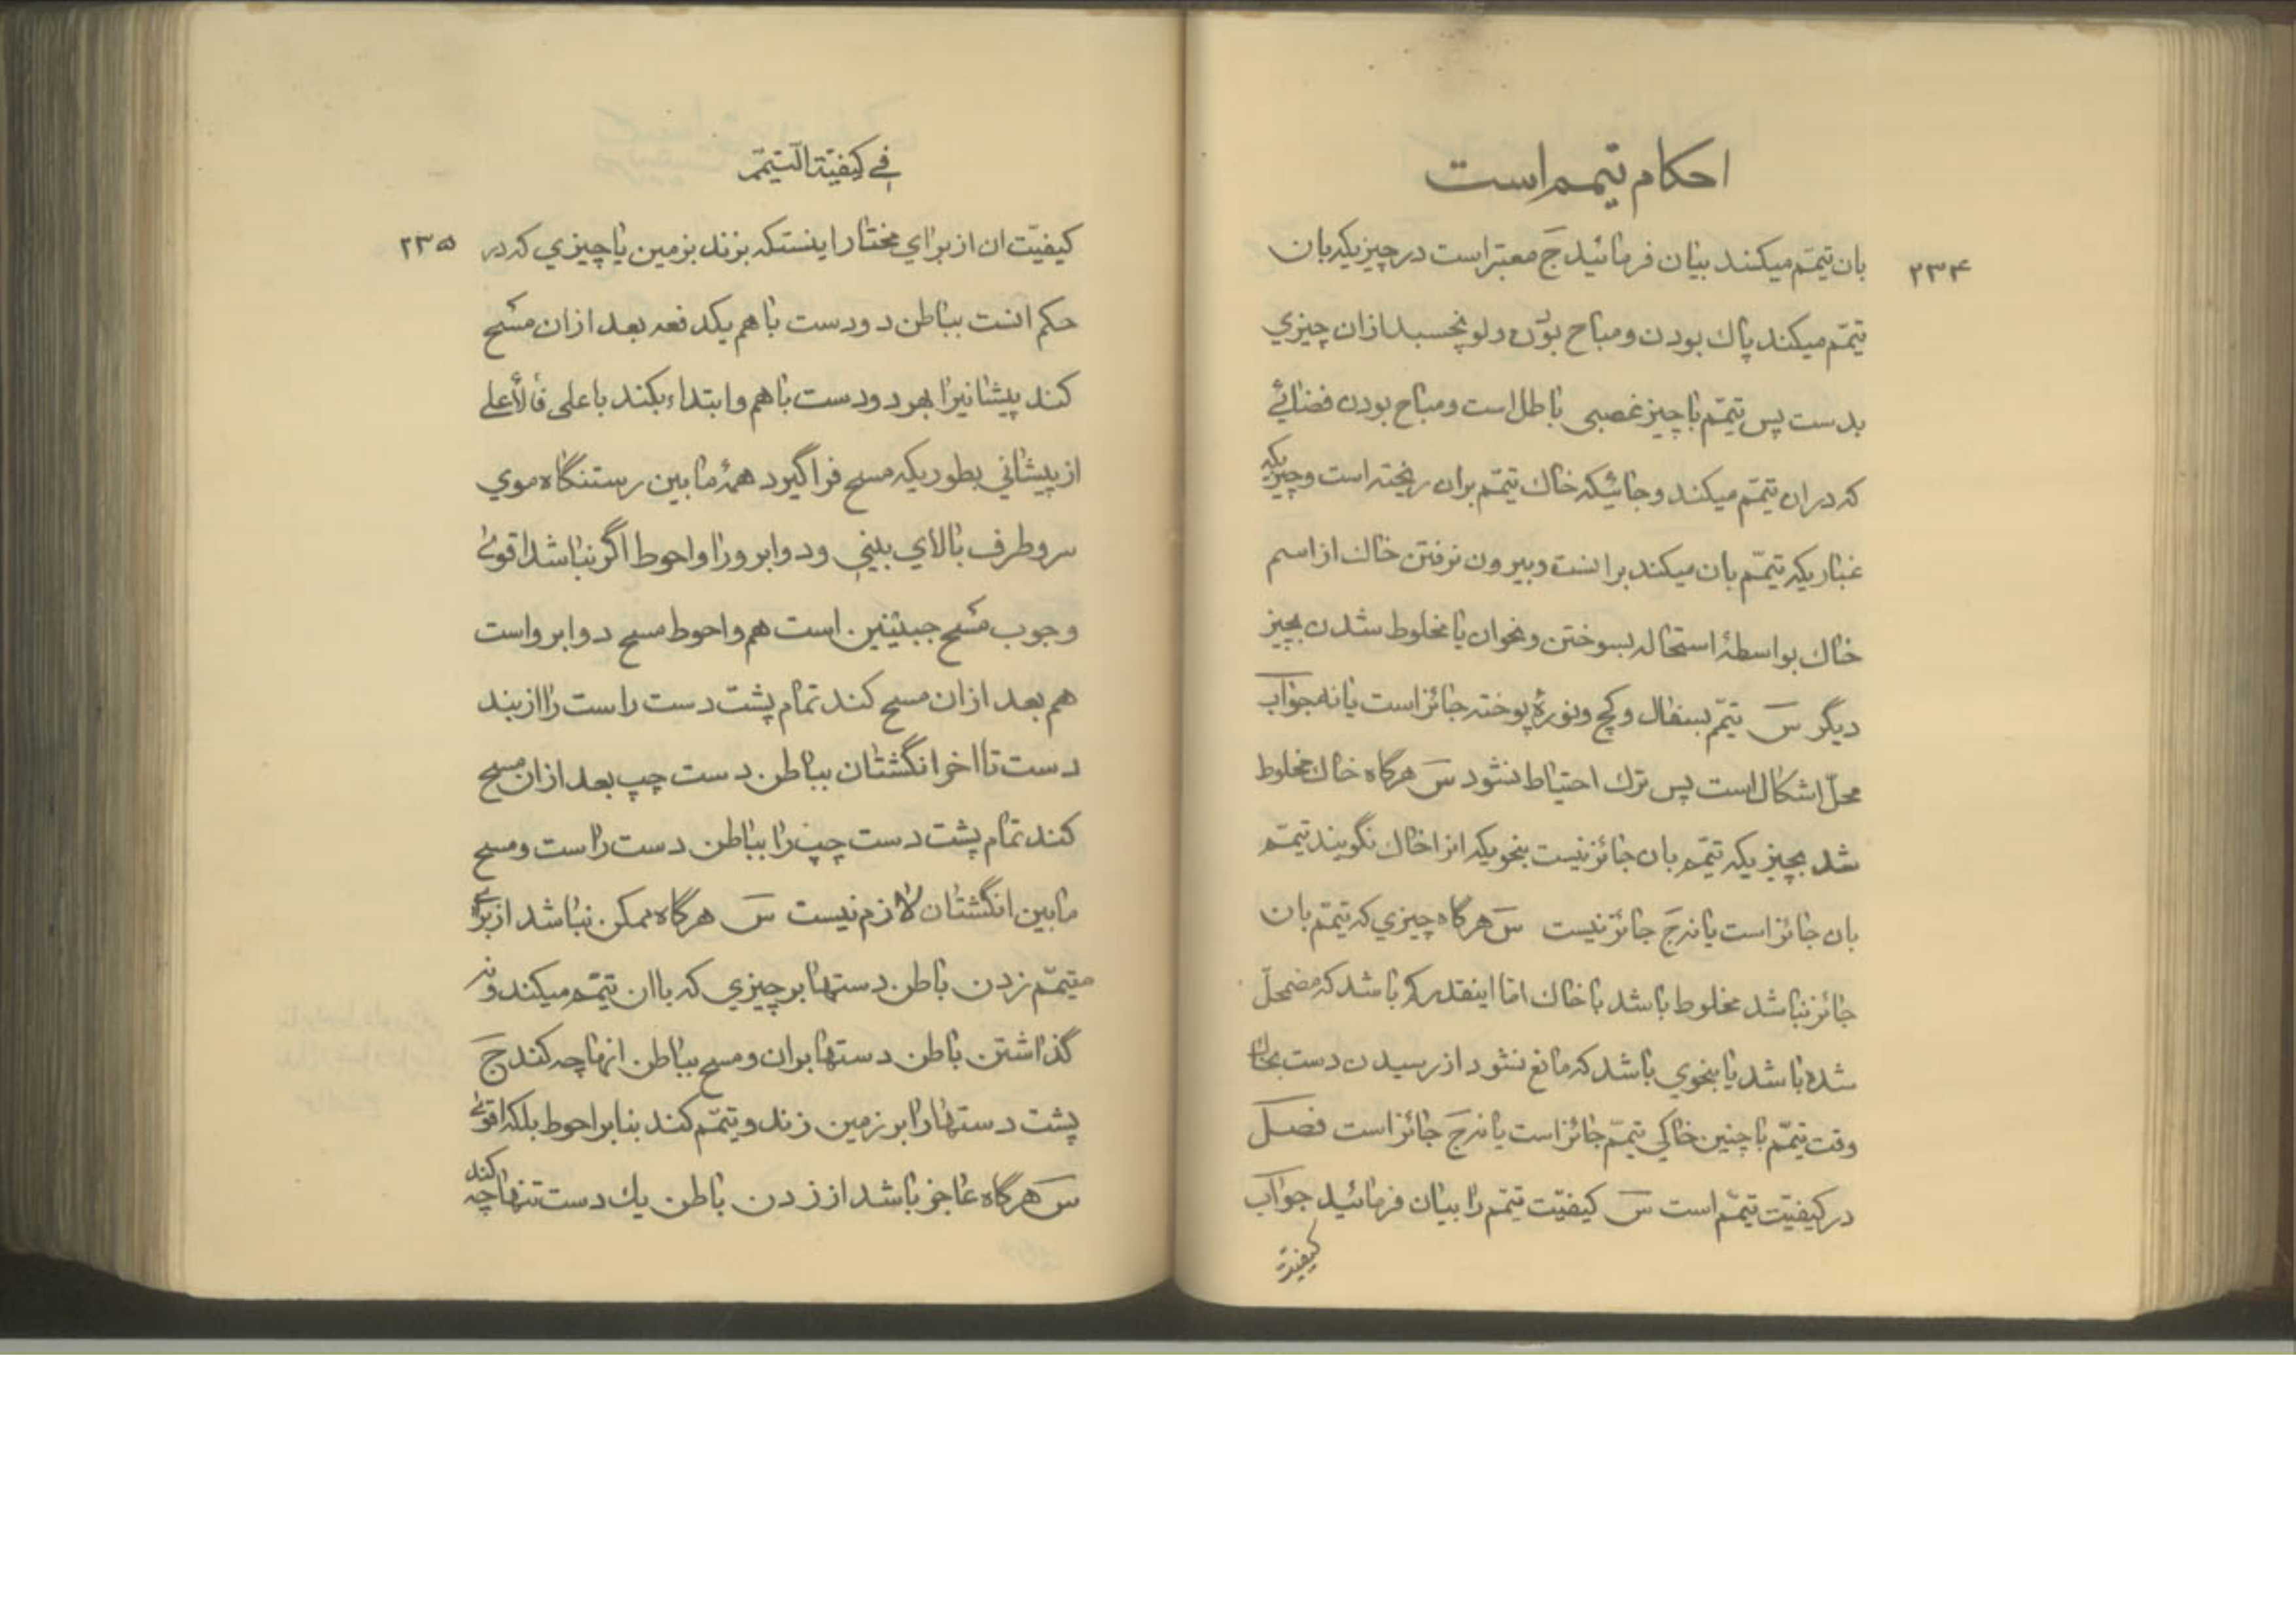 احکام تیمم است
۲۳۴
بان تیمّم میکند بیان فرمائید جَ معتبر است در چیزیکه بان
تیمّم میکند پاك بودن و مباح بودن ولو نچسبد ازان چیزي
بدست پس تیمّم با چیز غصبی باطل است و مباح بودن فضائے
که دران تیمّم میکند و جائیکه خاك تیمّم بران ریخته است و چیزیکه
غباریکه تیمّم بان میکند برانست و بیرون نرفتن خاك از اسم
خاك بواسطهٔ استحاله بسوختن و نحوان یا مخلوط شدن بچیز
دیگر سَ تیمّم بسفال و کچ و نورهٔ پوخته جائز است یا نه جواب
محلّ اشکال است پس ترك احتیاط نشود سَ هرگاه خاك مخلوط
شد بچیزیکه تیمّم بان جائز نیست بنحویکه انرا خاك نگویند تیمّم
بان جائز است یا نه جَ جائز نیست سَ هرگاه چیزي که تیمّم بان
جائز نباشد مخلوط باشد با خاك اما اینقدر که باشد که مضمحلّ
شده باشد یا بنحوي باشد که مانع نشود از رسیدن دست بخاك
وقت تیمّم با چنین خاکي تیمّم جائز است یا نه جَ جائز است فصل
در کیفیّت تیمّم است سَ کیفیّت تیمّم را بیان فرمائید جواب
کیفیّت
في کیفیّة التیمّم
۲۳۵
کیفیّت ان از براي مختار اینستکه بزند بزمین یا چیزي که در
حکم انست بباطن دو دست با هم یکدفعه بعد ازان مسح
کند پیشانیرا بهر دو دست با هم و ابتداء بکند باعلی فالأعلي
از پیشاني بطوریکه مسح فراگیرد همهٔ ما بین رستنگاه موي
سر و طرف بالاي بیني و دو ابرو را و احوط اگر نباشد اقوئ
وجوب مسح جبینین است هم و احوط مسح دو ابرو است
هم بعد ازان مسح کند تمام پشت دست راست را از بند
دست تا اخر انگشتان بباطن دست چپ بعد ازان مسح
کند تمام پشت دست چپ را بباطن دست راست و مسح
ما بین انگشتان لازم نیست سَ هرگاه ممکن نباشد از براي
متیمّم زدن باطن دستها بر چیزي که باان تیمّم میکند و نه
گذاشتن باطن دستها بران و مسح بباطن انها چه کند جَ
پشت دستها را بر زمین زند و تیمّم کند بنابر احوط بلکه اقوئ
سَ هرگاه عاجز باشد از زدن باطن یك دست تنها چه کند